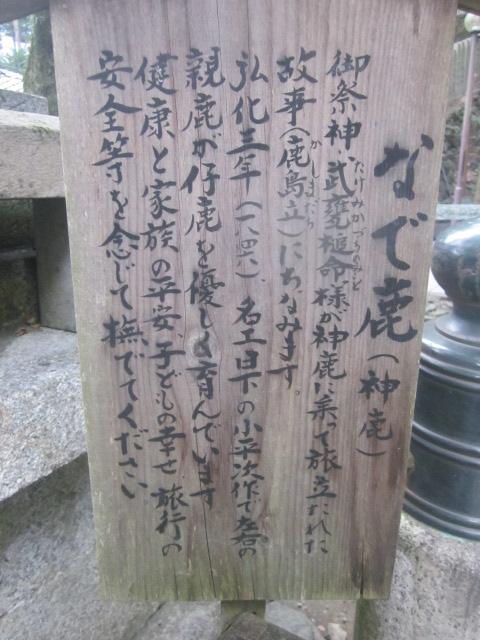 なで鹿(神鹿)
たけみかづちのみこと
御祭神 武甕槌命様が神鹿に乗って旅立たれた
かしまだち
故事(鹿島立)にちなみます。
弘化三年(一八四六)、名工日下の小平次作で左右の
親鹿が仔鹿を優しく育んでいます
健康と家族の平安、子どもの幸せ、旅行の
安全等を念じて撫でてください